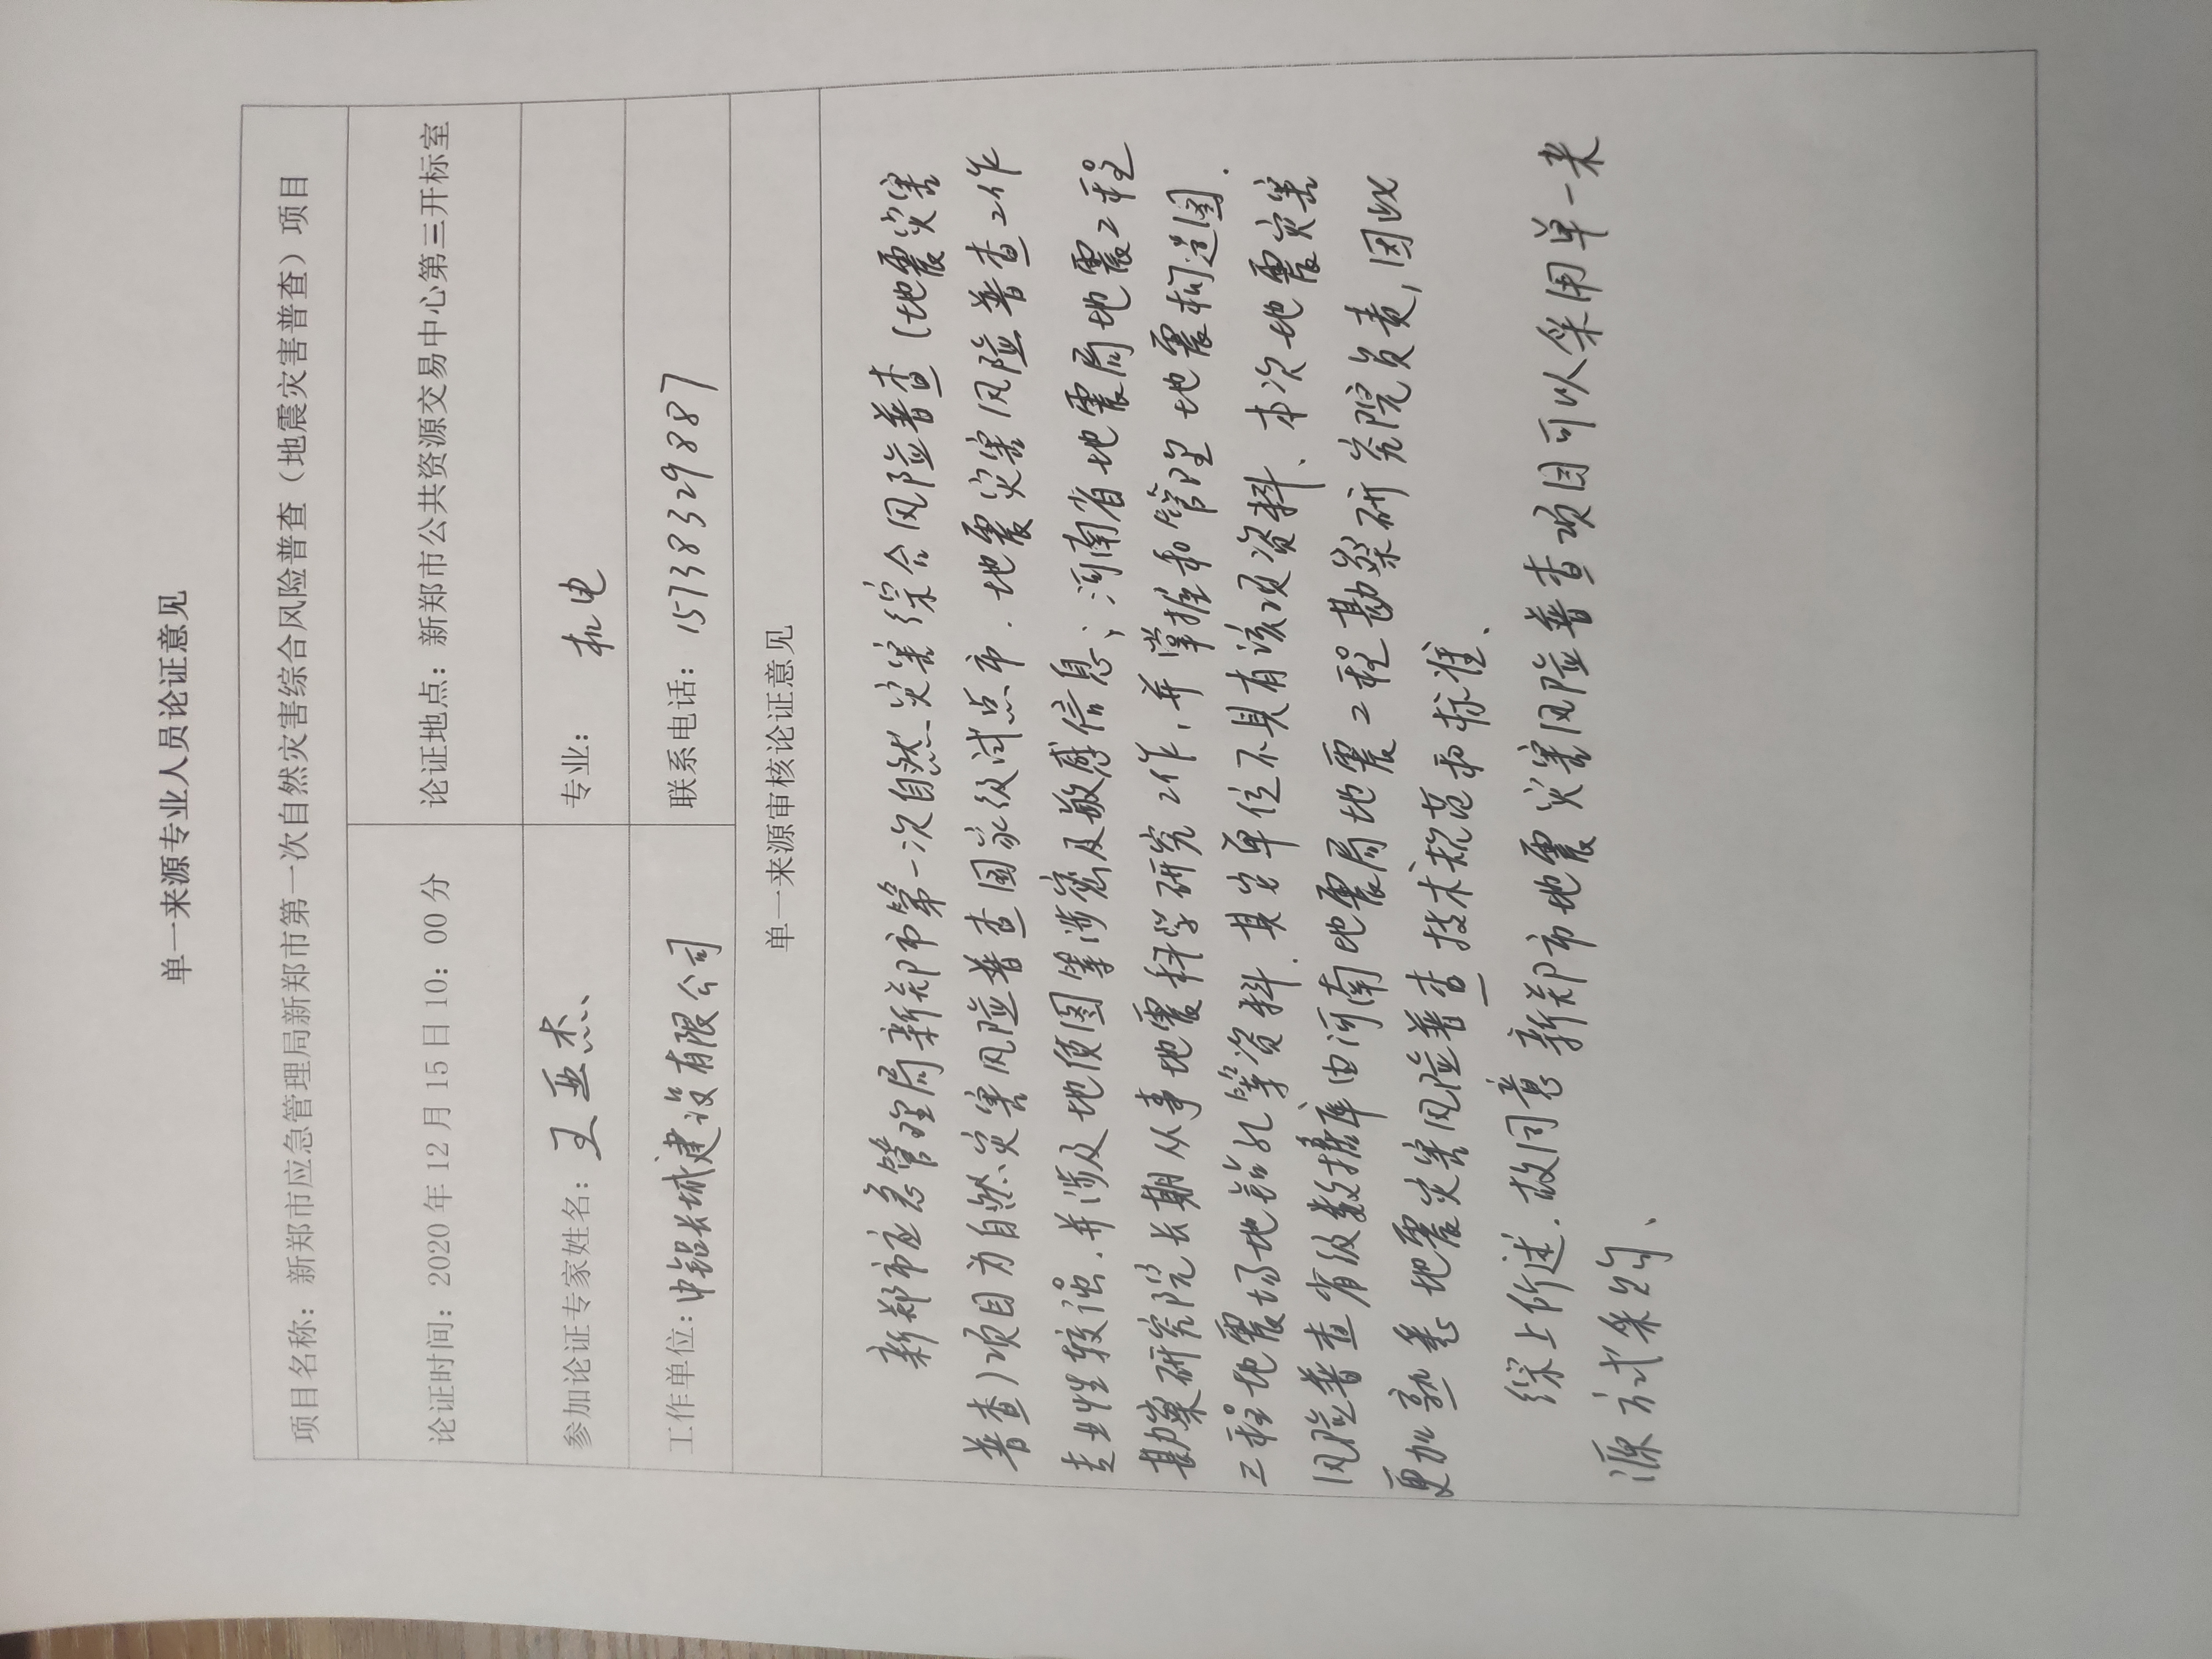 单一来源专业人员论证意见
项目名称：新郑市应急管理局新郑市第一次自然灾害综合风险普查（地震灾害普查）项目
论证时间：2020年12月15日10：00分
论证地点：新郑市公共资源交易中心第三开标室
参加论证专家姓名：王亚杰
专业：机电
工作单位：中铝长城建设有限公司
联系电话：15738329887
单一来源审核论证意见
新郑市应急管理局新郑市第一次自然灾害综合风险普查（地震灾害
普查）项目为自然灾害风险普查国家级试点市．地震灾害风险普查工作
专业性较强．并涉及地质图等涉密及敏感信息；河南省地震局地震工程
勘察研究院长期从事地震科学研究工作，并掌握和管理地震构造图．
工程地震场地钻孔等资料．其它单位不具有该项资料、本次地震灾害
风险普查省级数据库由河南地震局地震工程勘察研究院负责，因此
更加熟悉地震灾害风险普查技术规范和标准、
综上所述．故同意新郑市地震灾害风险普查项目可以采用单一来
源方式采购、